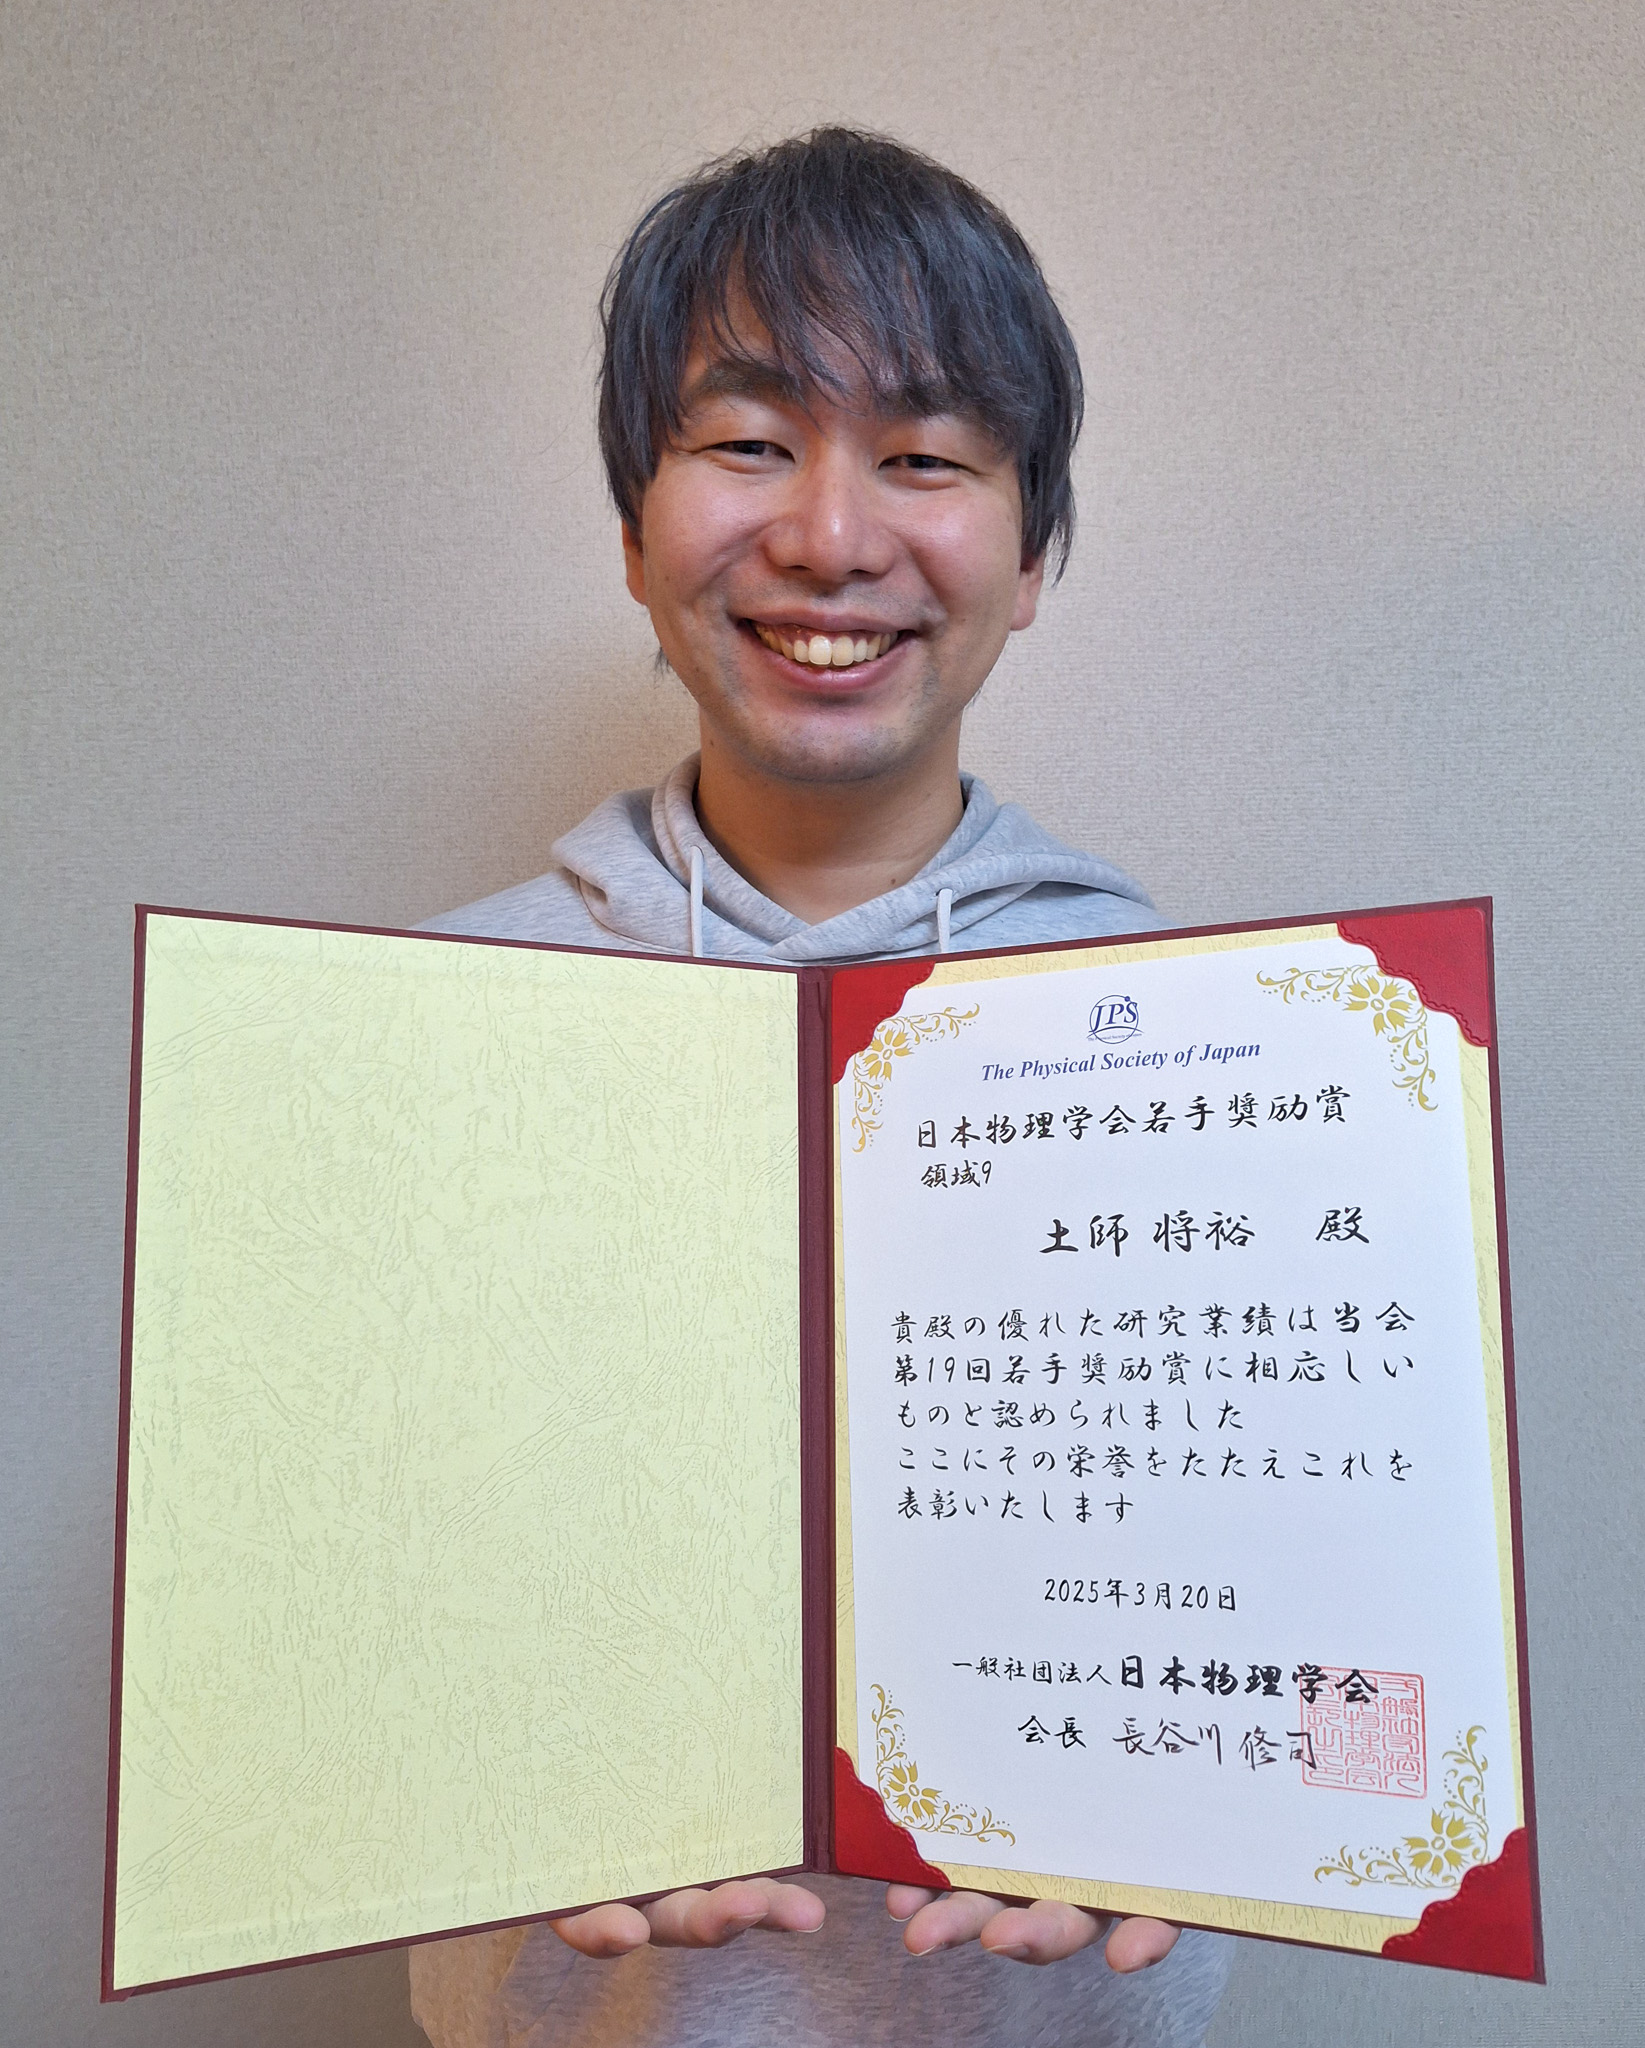 JPS
The Physical Society of Japan
日本物理学会若手奨励賞
領域9
土師 将裕 殿
貴殿の優れた研究業績は当会
第19回若手奨励賞に相応しい
ものと認められました
ここにその栄誉をたたえこれを
表彰いたします
2025年3月20日
一般社団法人日本物理学会
会長 長谷川 修司